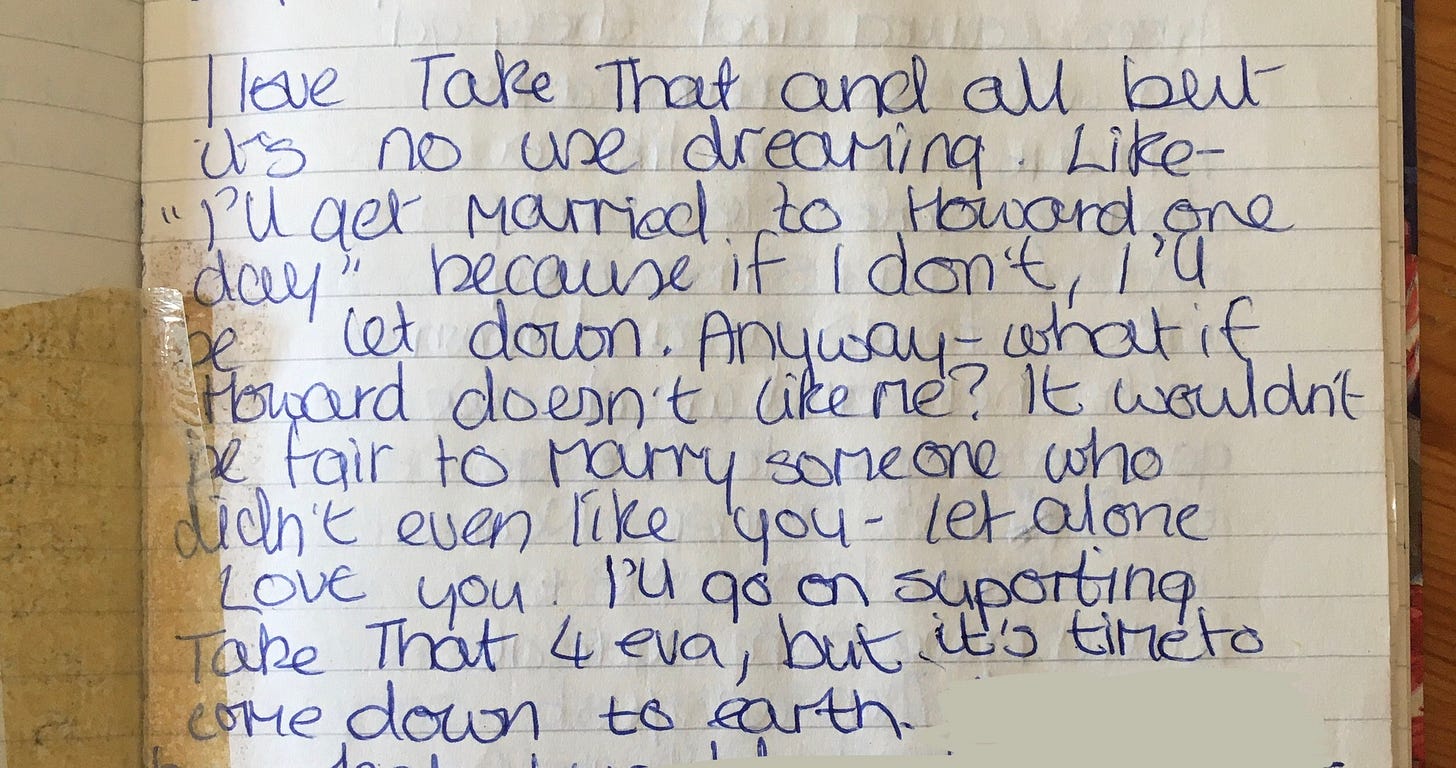 I love Take That and all but
it's no use dreaming. Like-
"I'll get married to Howard one
day" because if I don't, I'll
be let down. Anyway-what if
Howard doesn't like me? It wouldn't
be fair to marry someone who
didn't even like you- let alone
Love you. I'll go on suporting
Take That 4 eva, but it's time to
come down to earth.